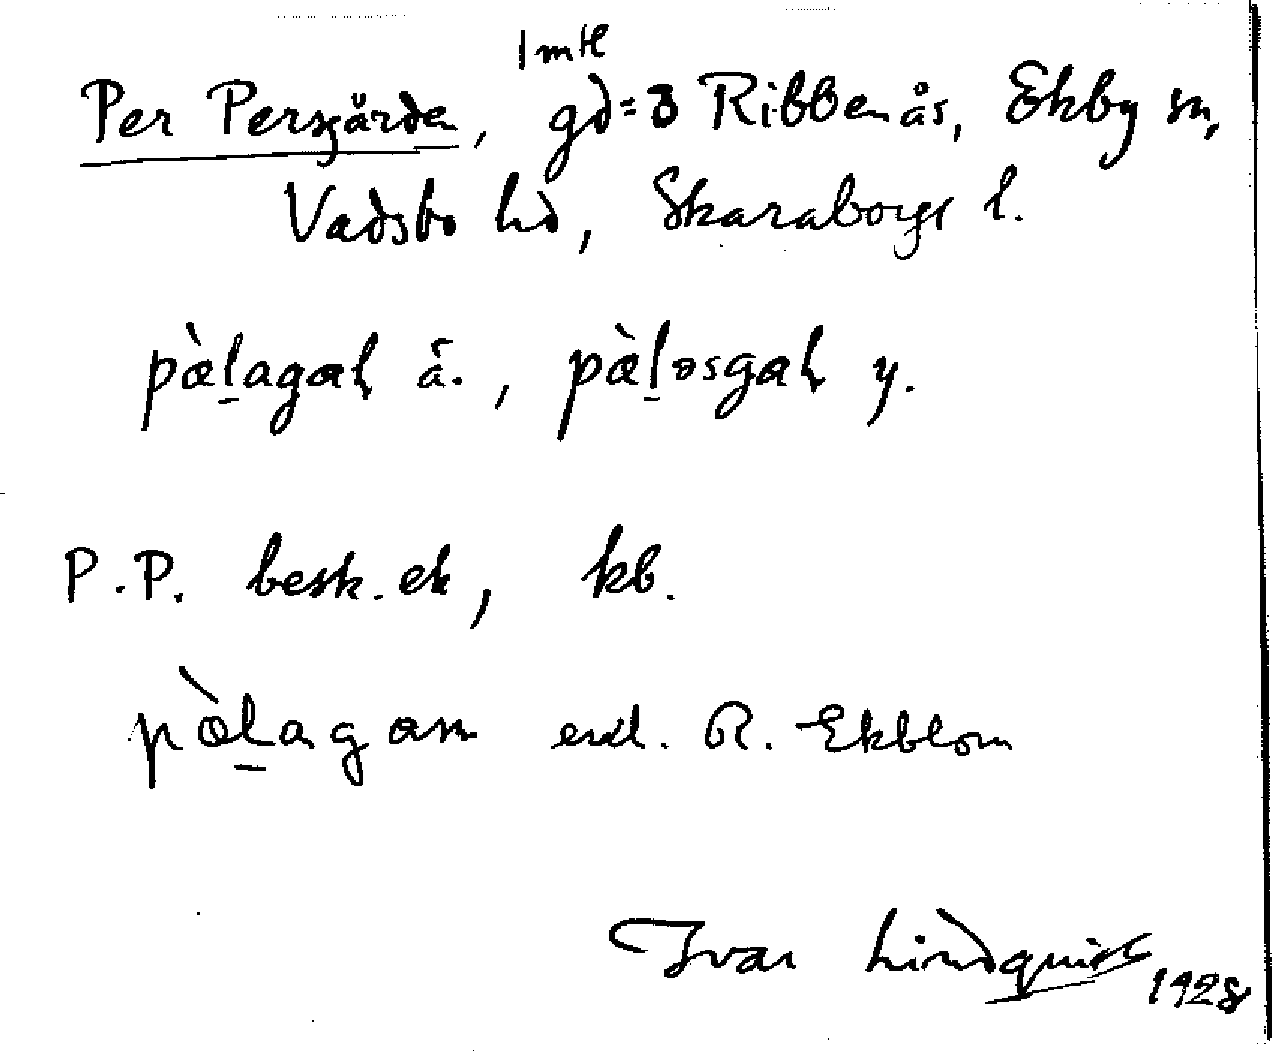 1 mtl
Per Persgården, gd = 3 Ribbenås, Ekby sn,
Vadsbo hd, Skaraborgs l.
pæ̀l̠agaɫ ä., pæ̀l̠əsgaɫ y.
P.P. besk. ek, kb.
pæ̀l̠agaɹn enl. R. Ekblom
Ivar Lindquist 1928